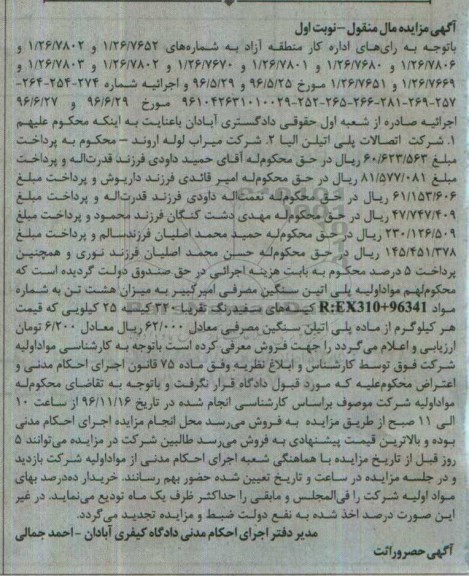 آگهی مزایده مال منقول – نوبت اول
باتوجه به رای‌های اداره کار منطقه آزاد به شماره‌های ۱/۲۶/۷۶۵۲ و ۱/۲۶/۷۸۰۲ و
۱/۲۶/۷۸۰۶ و ۱/۲۶/۷۶۸۰ و ۱/۲۶/۷۸۰۱ و ۱/۲۶/۷۶۷۰ و ۱/۲۶/۷۸۰۲ و ۱/۲۶/۷۸۰۳ و
۱/۲۶/۷۶۶۹ و ۱/۲۶/۷۶۵۱ مورخ ۹۶/۵/۲۵ و ۹۶/۵/۲۹ و اجرائیه شماره ۲۷۴-۲۵۴-۲۶۴-
۲۵۷-۲۶۹-۲۸۱-۲۶۶-۲۶۵-۲۵۲-۹۶۱۰۴۲۶۳۱۰۱۰۰۲۹ مورخ ۹۶/۶/۲۹ و ۹۶/۶/۲۷
اجرائیه صادره از شعبه اول حقوقی دادگستری آبادان باعنایت به اینکه محکوم علیهم
۱. شرکت اتصالات پلی اتیلن الیا ۲. شرکت میراب لوله اروند – محکوم به پرداخت
مبلغ ۶۰/۶۲۳/۵۶۳ ریال در حق محکوم‌له آقای حمید داودی فرزند قدرت‌اله و پرداخت
مبلغ ۸۱/۵۷۷/۰۸۱ ریال در حق محکوم‌له امیر قائدی فرزند داریوش و پرداخت مبلغ
۶۱/۱۵۳/۶۰۶ ریال در حق محکوم‌له نعمت‌اله داودی فرزند قدرت‌اله و پرداخت مبلغ
۴۷/۷۴۷/۴۰۹ ریال در حق محکوم‌له مهدی دشت کنگان فرزند محمود و پرداخت مبلغ
۲۳۰/۱۲۶/۵۰۹ ریال در حق محکوم‌له حمید محمد اصلیان فرزندسالم و پرداخت مبلغ
۱۴۵/۴۵۱/۳۷۸ ریال در حق محکوم‌له حسن محمد اصلیان فرزند نوری و همچنین
پرداخت ۵ درصد محکوم به بابت هزینه اجرائی در حق صندوق دولت گردیده است که
محکوم‌لهم مواداولیه پلی اتین سنگین مصرفی امیرکبیر به میزان هشت تن به شماره
مواد R:EX310+96341 کیسه‌های سفیدرنگ تقریبا ۳۲۰ کیسه ۲۵ کیلویی که قیمت
هر کیلوگرم از ماده پلی اتیلن سنگین مصرفی معادل ۶۲/۰۰۰ ریال معادل ۶/۲۰۰ تومان
ارزیابی و اعلام می‌گردد را جهت فروش معرفی کرده است باتوجه به کارشناسی مواداولیه
شرکت فوق توسط کارشناس و ابلاغ نظریه وفق ماده ۷۵ قانون اجرای احکام مدنی و
اعتراض محکوم‌علیه که مورد قبول دادگاه قرار نگرفت و باتوجه به تقاضای محکوم‌له
مواداولیه شرکت موصوف براساس کارشناسی انجام شده در تاریخ ۹۶/۱۱/۱۶ از ساعت ۱۰
الی ۱۱ صبح از طریق مزایده به فروش می‌رسد محل انجام مزایده اجرای احکام مدنی
بوده و بالاترین قیمت پیشنهادی به فروش می‌رسد طالبین شرکت در مزایده می‌توانند ۵
روز قبل از تاریخ مزایده با هماهنگی شعبه اجرای احکام مدنی از مواداولیه شرکت بازدید
و در جلسه مزایده در ساعت و تاریخ تعیین شده حضور بهم رسانند. خریدار ده‌درصد بهای
مواد اولیه شرکت را فی‌المجلس و مابقی را حداکثر ظرف یک ماه تودیع می‌نماید. در غیر
این صورت درصد اخذ شده به نفع دولت ضبط و مزایده تجدید می‌گردد.
مدیر دفتر اجرای احکام مدنی دادگاه کیفری آبادان – احمد جمالی
آگهی حصروراثت